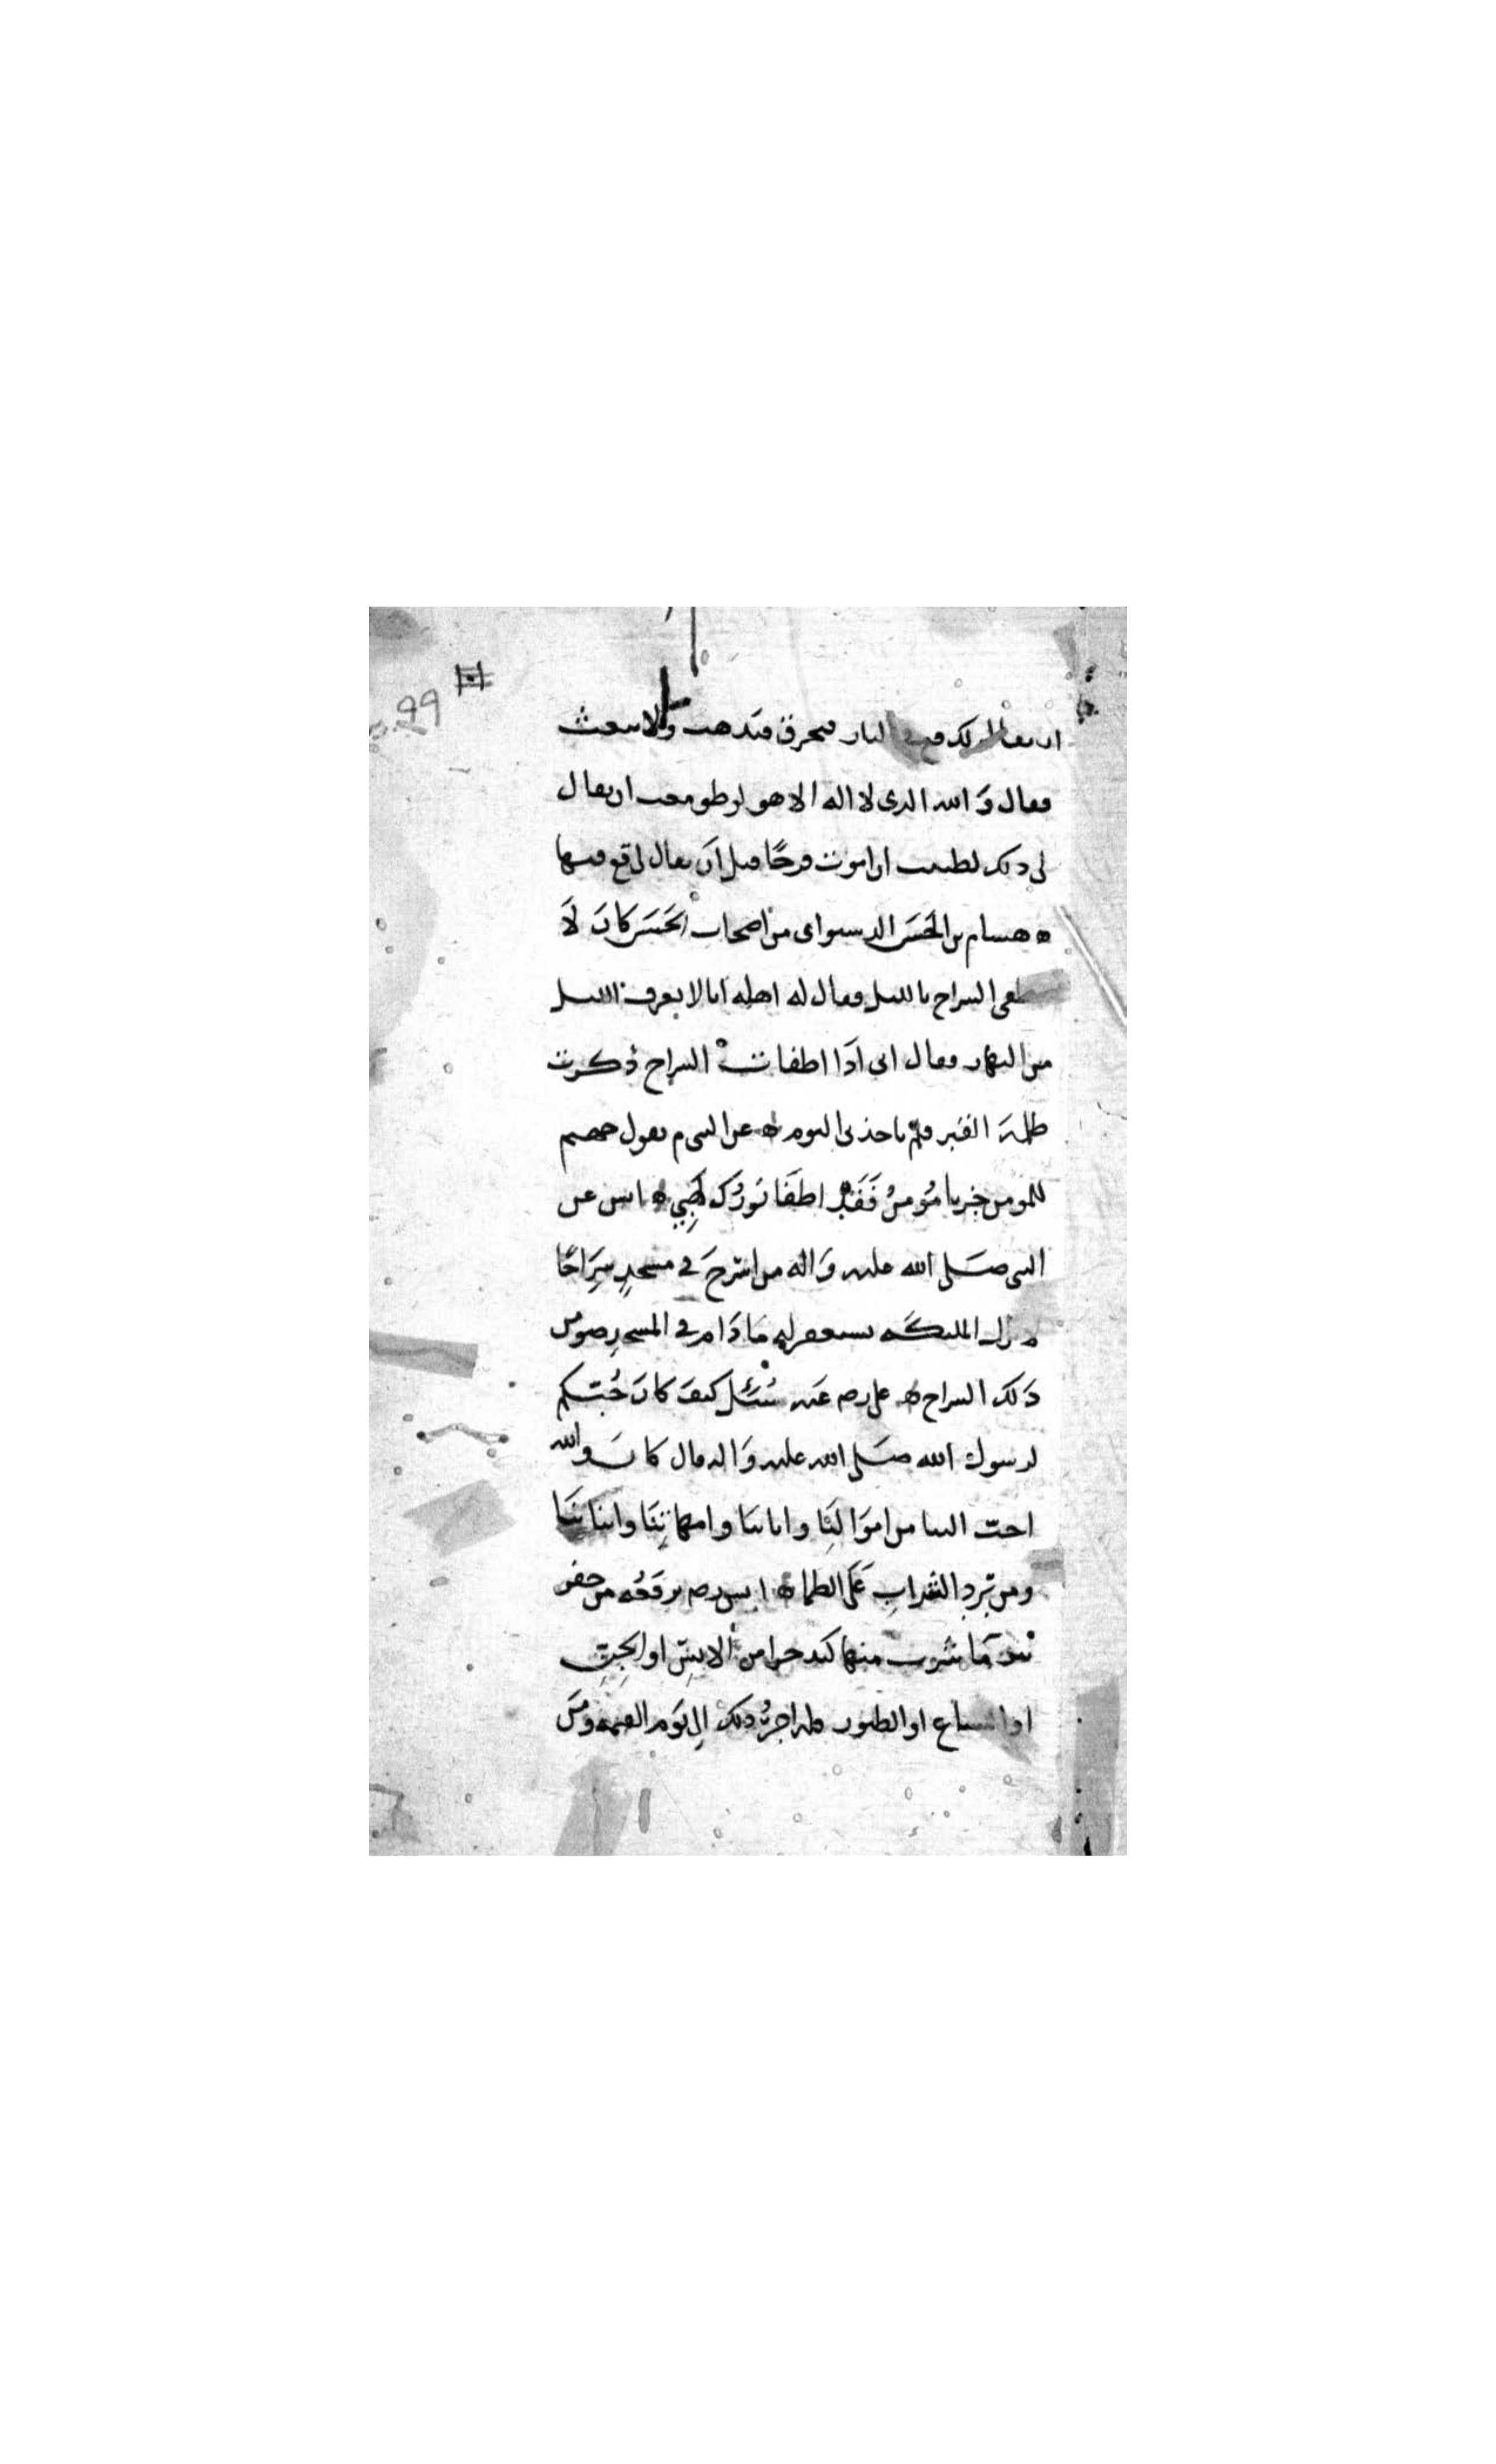 99
ان يقال لك قع في النار فتحرق فتذهب ولا تبعث
فقال وَالله الذي لا اله الا هو لو طو معت ان يقال
لي ذلك لظننت ان اموت فرحًا قبل اَن يقال لي قع فيها
ه هشام بن الحَسَن الدستواي من اصحاب الحَسَن كانَ لَا
يطفي السراج بالليل فقال له اهله انا لا نعرف الليل
من النهار فقال اني اذَا اطفات السراج ذكرت
ظلمَة القبر فلم ياخذني النوم ه عن النبي م تقول جهنم
للمومن جز يا مُومنُ فَقَدْ اطفَا نورُك لهبي ه انس عن
النبي صَلى الله عليه وَاله من اسْرجَ في مسجدٍ سِرَاجًا
لم تزل الملئكَة تستغفر له ما دَام في المسجدِ ضو من
ذَلك السراج ه علي رضه عَنه سُئِل كيفَ كانَ حُبّكم
لرسول الله صَلى الله عليه وَاله قال كانَ والله
احبّ الينا من اموَالِنَا وابائنا وامهاتِنَا وابنائنَا
ومن بَردِ الشرابِ عَلى الظما ه انس رضه يرفعُه من حفر
بئرا مَا شرب منها كبد حرا من الانسِ او الجنِ
او السباع او الطيور فله اجرُ ذلك الى يَوم القيمة ومَن